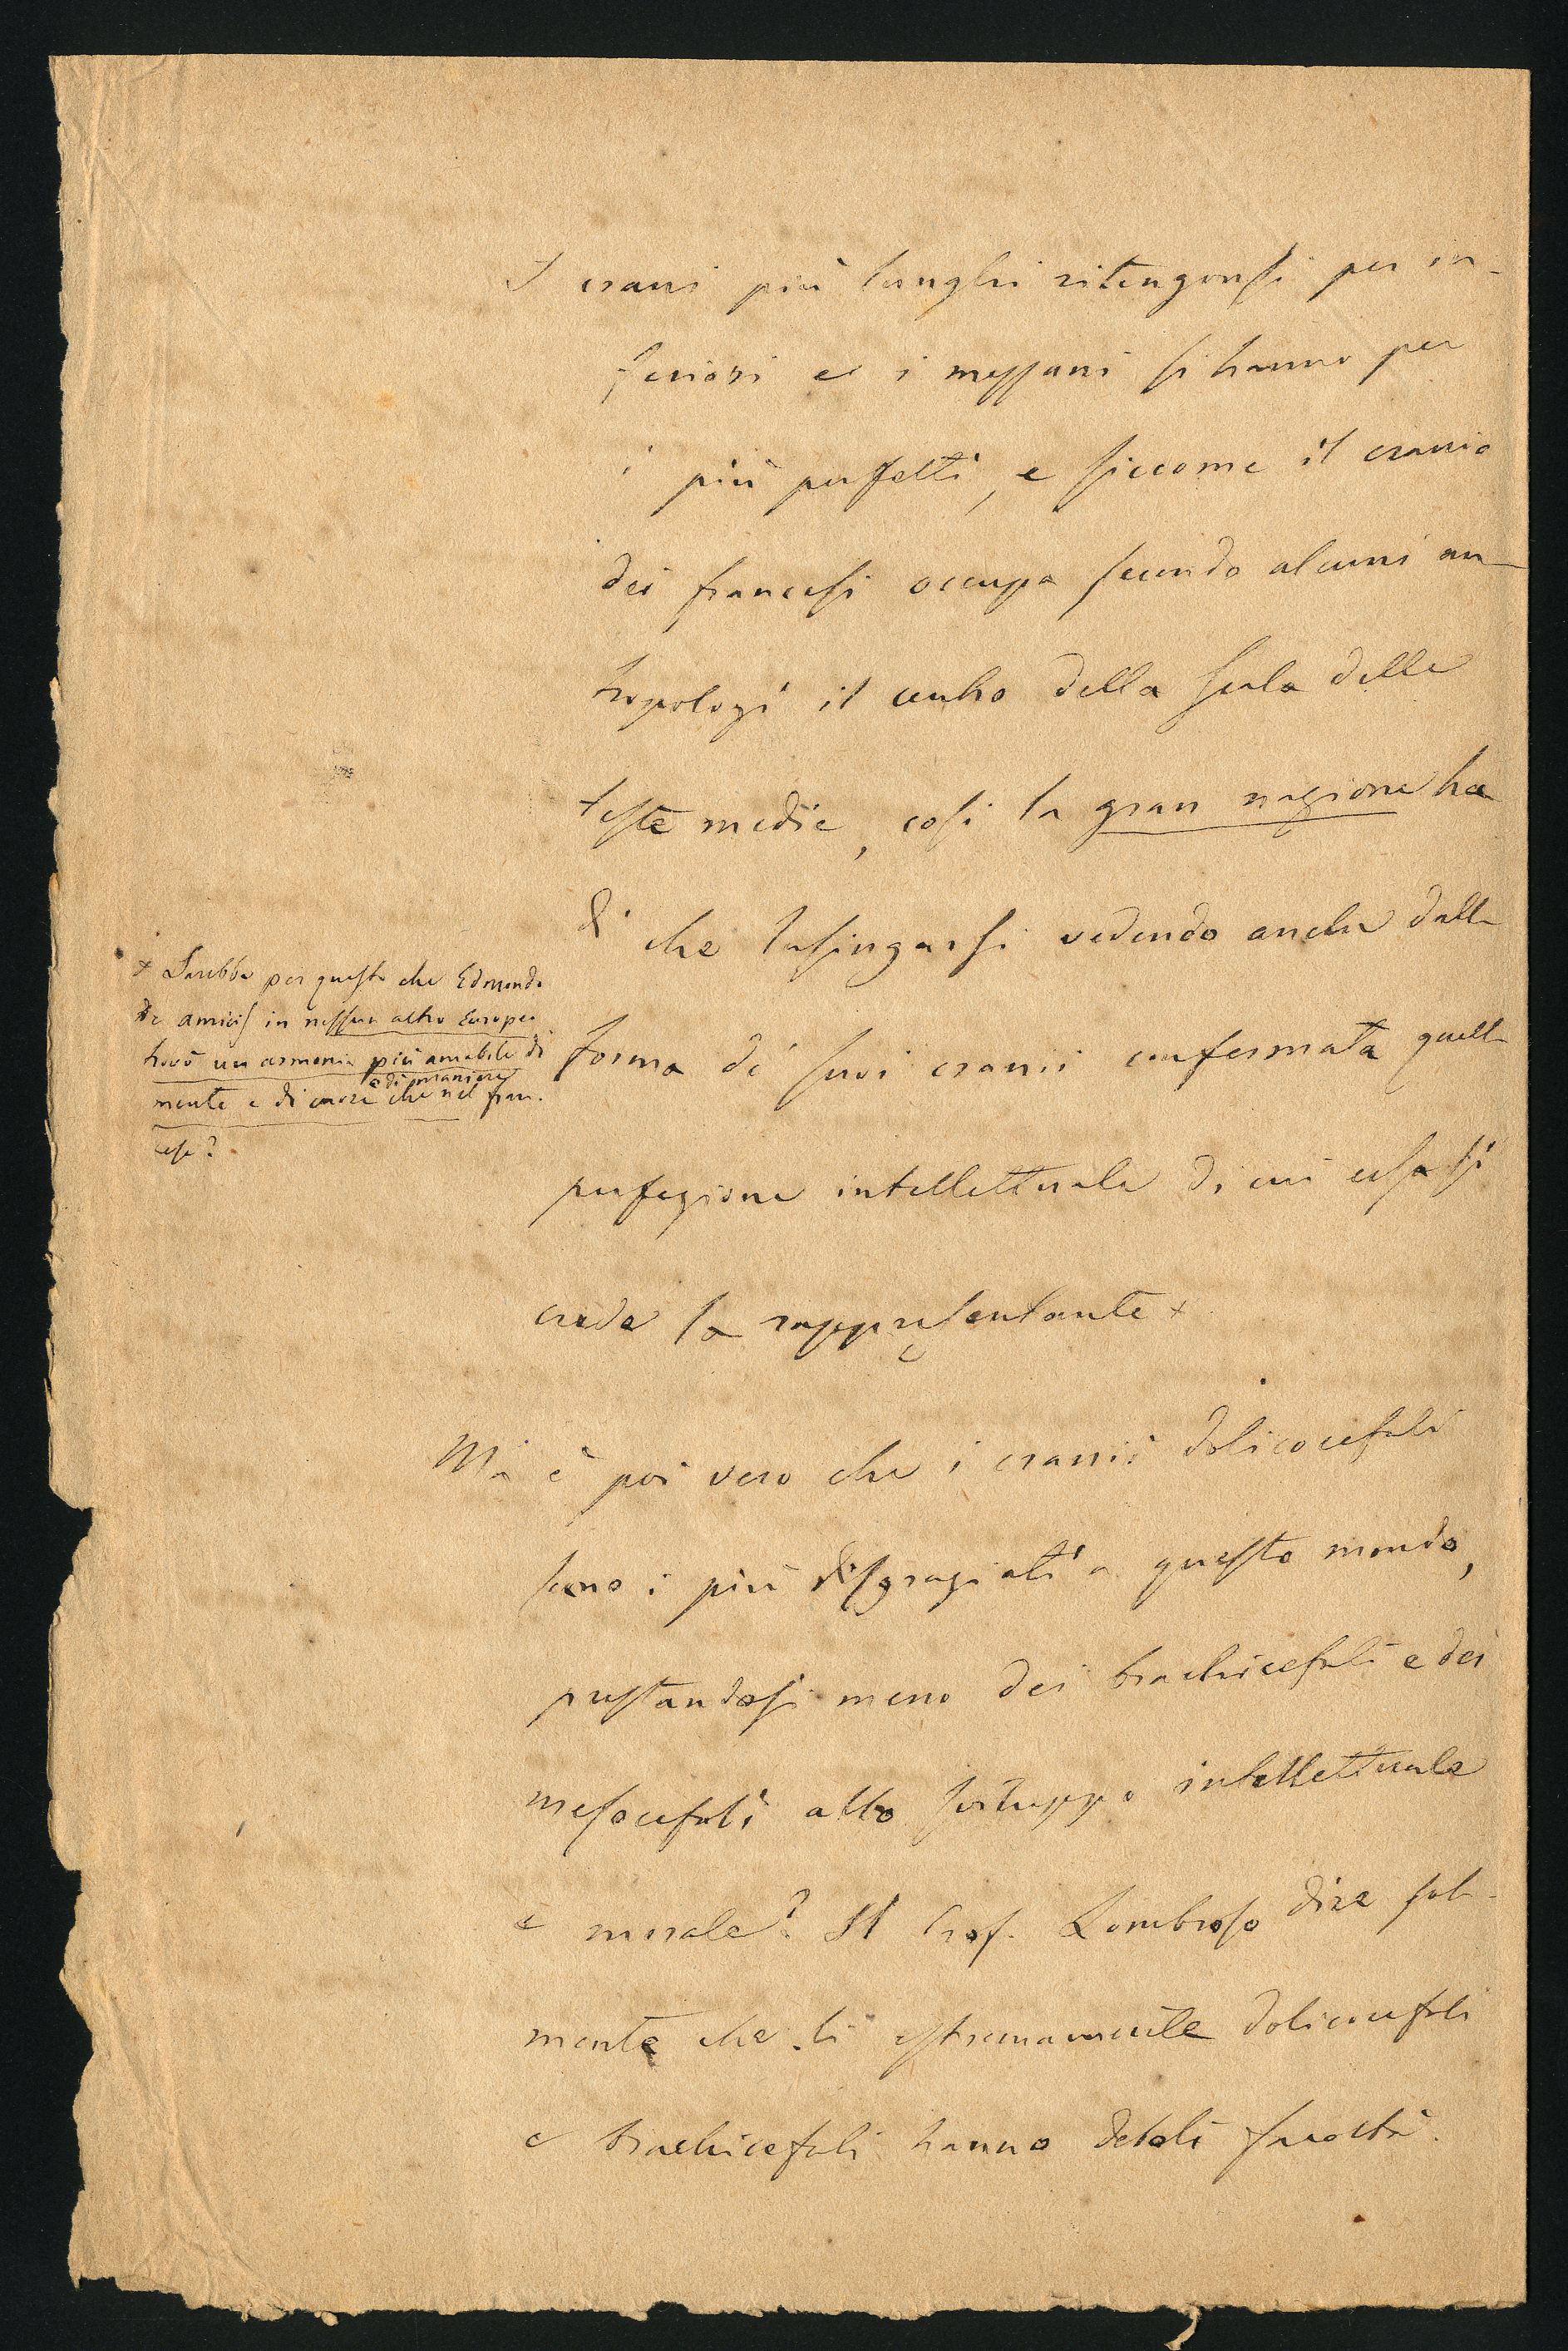 I crani più lunghi ritengonsi per in-
feriori e i mezzani si hanno per
i più perfetti, e siccome il cranio
dei francesi occupa secondo alcuni an-
tropologi il centro della scala delle
teste medie, così la gran nazione ha
di che lusingarsi vedendo anche dalla
forma de' suoi cranii confermata quella
perfezione intellettuale di cui essa si
crede la rappresentante +
+ Sarebbe per questo che Edmondo
De Amicis in nessun altro Europeo
trovò un armonia più amabile di
mente e di cuore e di maniere che nel fran-
cese?
Ma è poi vero che i cranii dolicocefali
sono i più disgraziati a questo mondo,
prestandosi meno dei brachicefali e dei
mesocefali allo sviluppo intellettuale
e morale? Il Prof. Lombroso dice sola-
mente che li estremamente dolicocefali
e brachicefali hanno deboli facoltà.